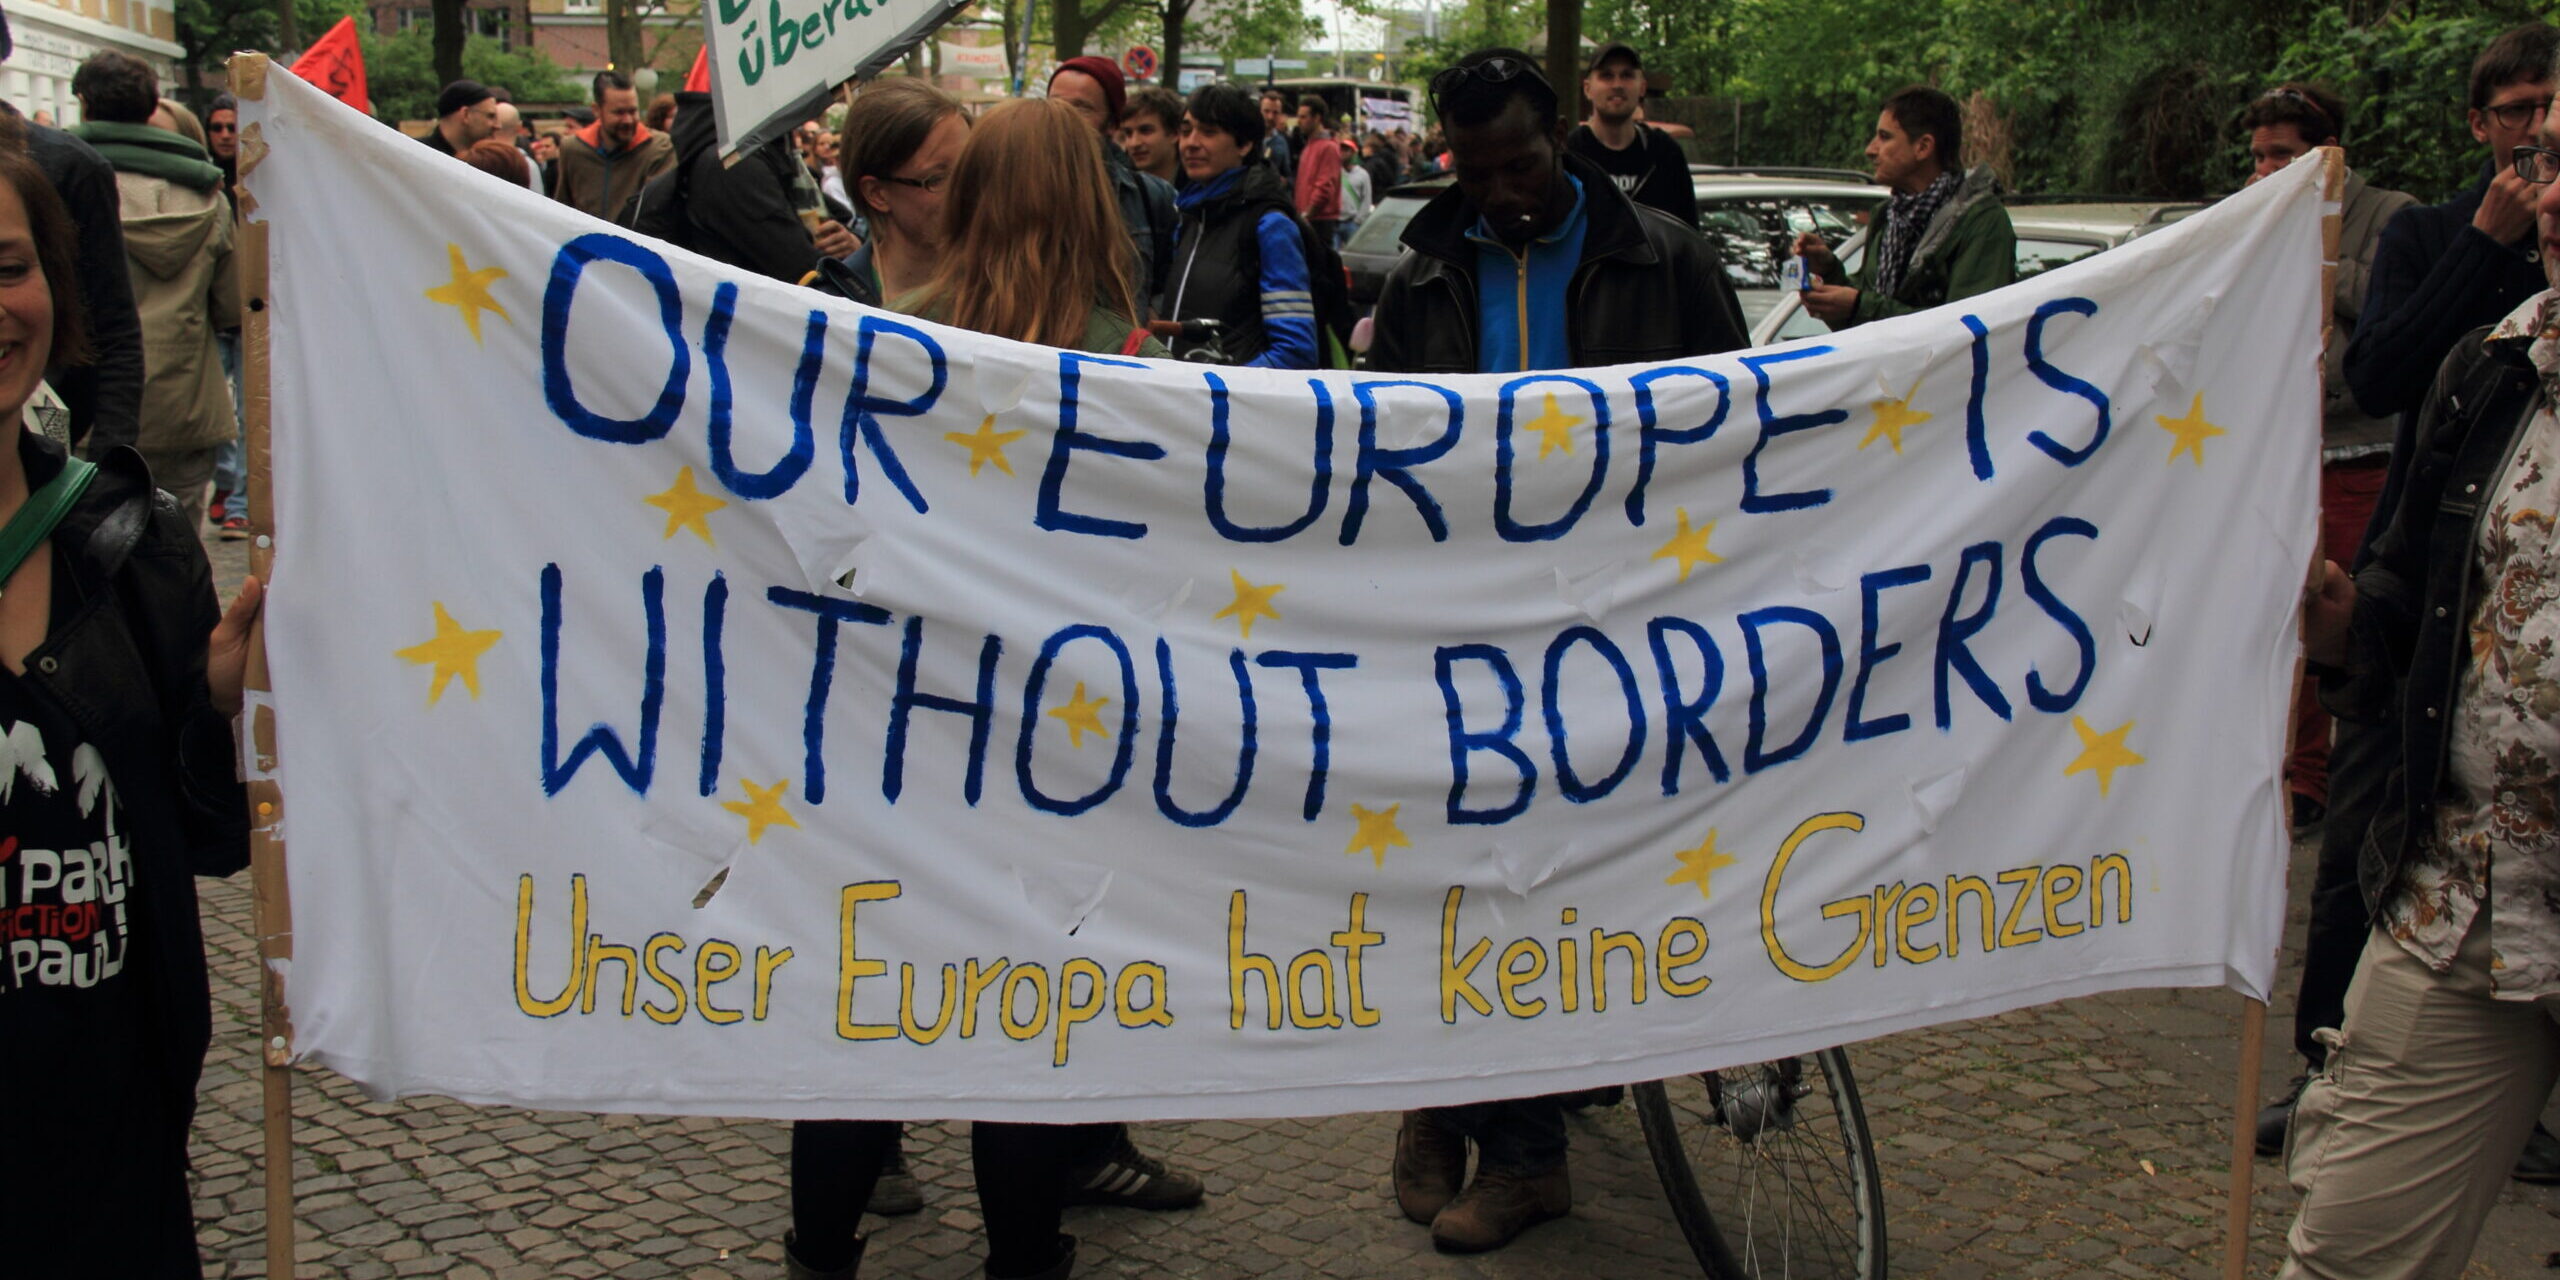 überall
OUR EUROPE IS
WITHOUT BORDERS
Unser Europa hat keine Grenzen
PARK
FICTION
PAULI